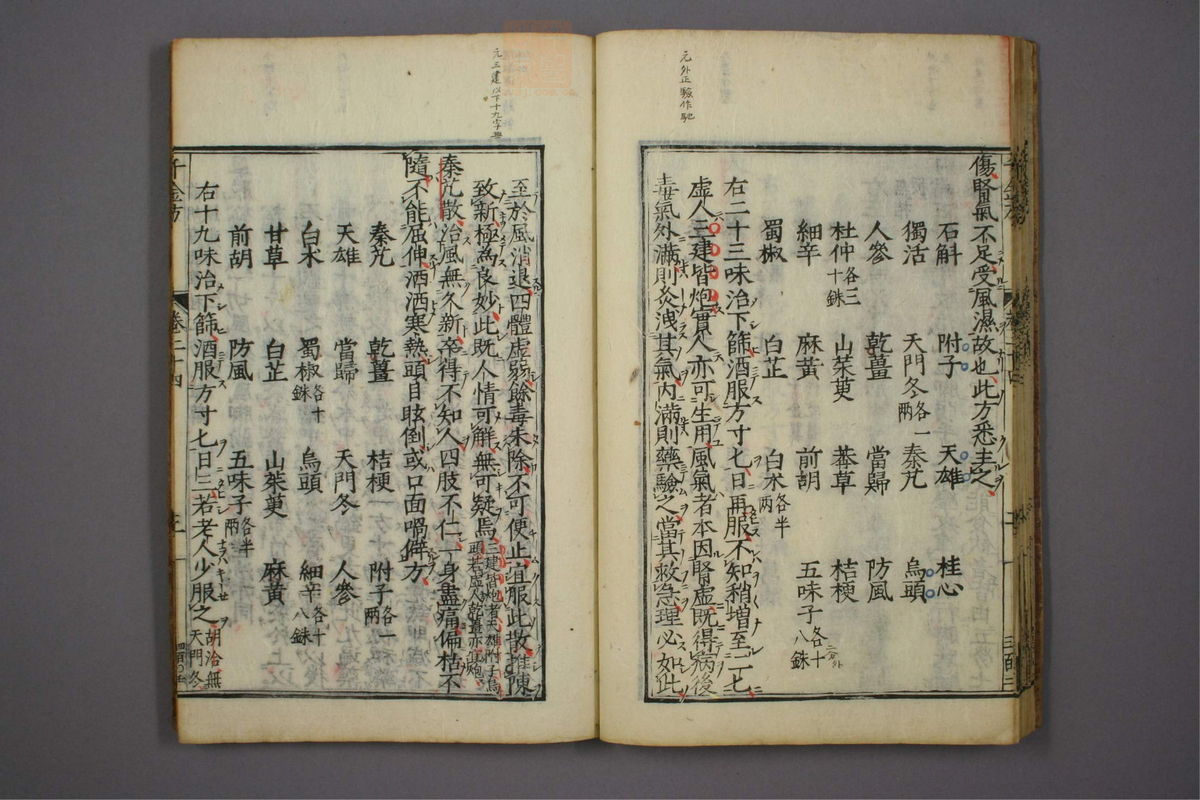 元外正驗作馳
傷腎氣不足受風濕故也此方悉主之
石斛 附子 天雄 桂心
獨活 天門冬各一兩 秦艽 烏頭
人參 乾薑 當歸 防風
杜仲各三十銖 山茱萸 莽草 桔梗
細辛 麻黃 前胡 五味子各十八銖
蜀椒 白芷 白朮各半兩
右二十三味治下篩酒服方寸七日再服不知稍增至二七
虛人三建皆炮實人亦可生用風氣者本因腎虛既得病後
毒氣外滿則灸洩其氣內滿則藥驗之當其救急理必如此
元三建以下十九字
至於風消退四體虛弱餘毒未除不可便止宜服此散推陳
致新極為良妙此既人情可解無可疑焉三建皆炮者天雄附子烏頭若虛人乾薑亦宜炮
秦艽散治風無久新卒得不知人四肢不仁一身盡痛偏枯不
隨不能屈伸洒洒寒熱頭目眩倒或口面喎僻方
秦艽 乾薑 桔梗 附子各一兩
天雄 當歸 天門冬 人參
白朮 蜀椒各十銖 烏頭 細辛各十八銖
甘草 白芷 山茱萸 麻黃
前胡 防風 五味子各半兩
右十九味治下篩酒服方寸七日三若老人少服之胡洽無天門冬
千金方 卷二十四